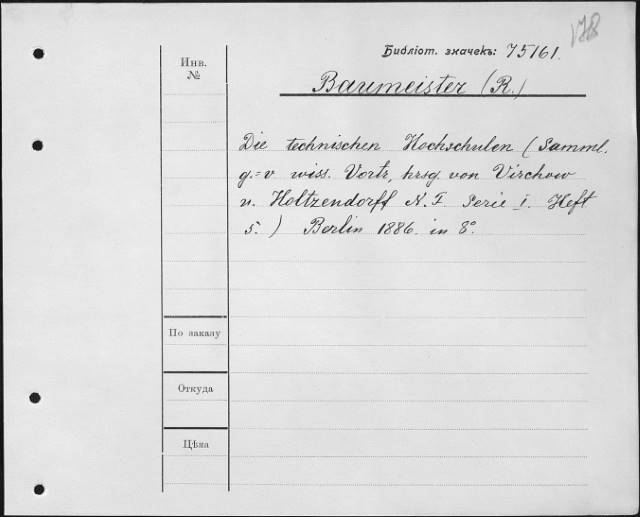 178
Библіот. значекъ: 75161.
Инв.
№
Baumeister (R.)
Die technischen Hochschulen (Samml.
g.=v wiss. Vortr, hrsg. von Virchow
u. Holtzendorff N. F. Serie I. Heft
5.) Berlin 1886. in 8º.
По заказу
Откуда
Цѣна